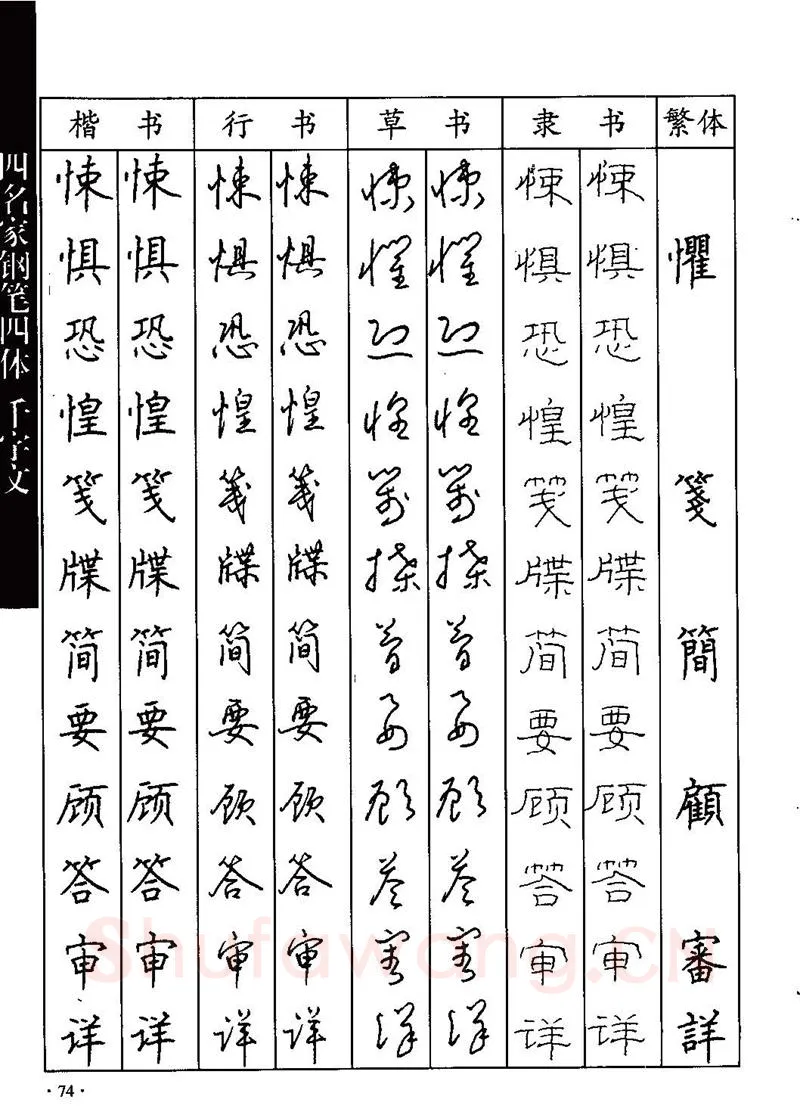 四名家钢笔四体 千字文
楷书 行书 草书 隶书 繁体
悚 悚 悚 悚 悚 悚 悚 悚
惧 惧 惧 惧 惧 惧 惧 惧 懼
恐 恐 恐 恐 恐 恐 恐 恐
惶 惶 惶 惶 惶 惶 惶 惶
笺 笺 笺 笺 笺 笺 笺 笺 箋
牒 牒 牒 牒 牒 牒 牒 牒
简 简 简 简 简 简 简 简 簡
要 要 要 要 要 要 要 要
顾 顾 顾 顾 顾 顾 顾 顾 顧
答 答 答 答 答 答 答 答
审 审 审 审 审 审 审 审 審
详 详 详 详 详 详 详 详 詳
Shufawang.CN
·74·